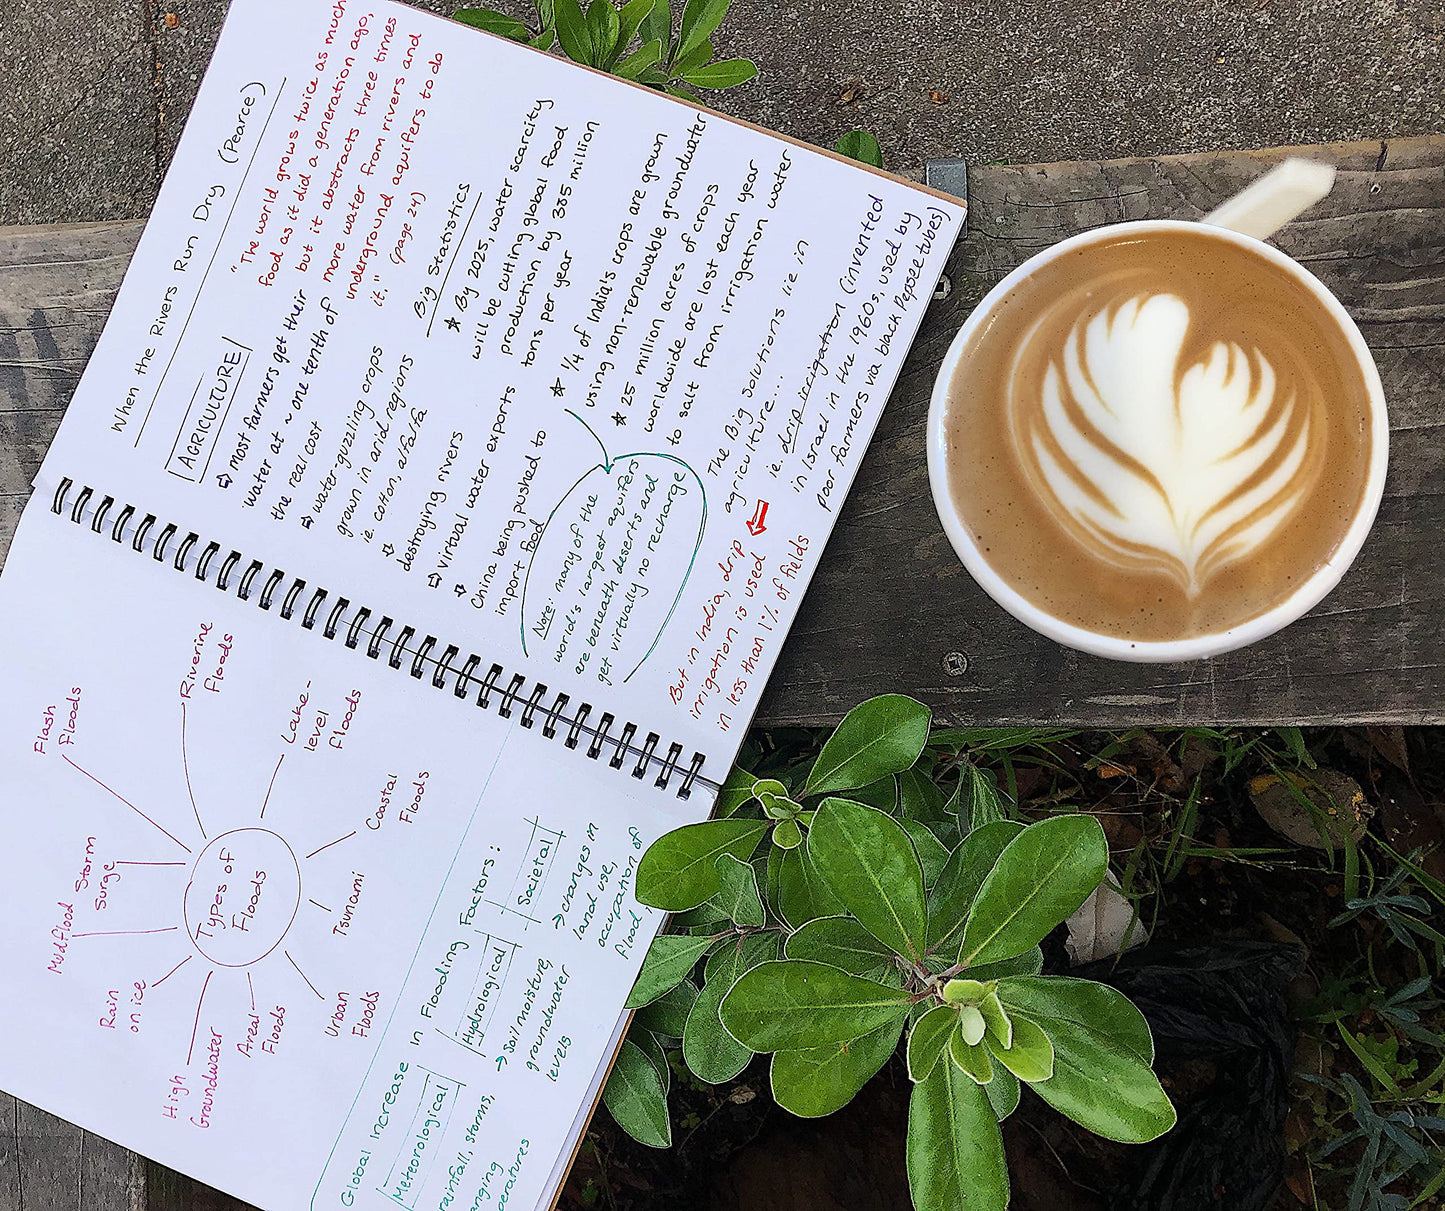 When the Rivers Run Dry (Pearce)
AGRICULTURE
⇨ most farmers get their
water at ~ one tenth of
the real cost
⇨ water guzzling crops
grown in arid regions
ie. cotton, alfalfa
⇨ destroying rivers
⇨ virtual water exports
⇨ China being pushed to
import food
"The world grows twice as much
food as it did a generation ago,
but it abstracts three times
more water from rivers and
underground aquifers to do
it." (page 24)
Big Statistics
★ By 2025, water scarcity
will be cutting global food
production by 385 million
tons per year
★ 1/4 of India's crops are grown
using non-renewable groundwater
★ 25 million acres of crops
worldwide are lost each year
to salt from irrigation water
Note: many of the
world's largest aquifers
are beneath deserts and
get virtually no recharge
The Big solutions lie in
agriculture...
ie. drip irrigation (invented
in Israel in the 1960s, used by
poor farmers via black Pepsee tubes)
But in India, drip
irrigation is used
in less than 1% of fields
Types of
Floods
Flash
Floods
Riverine
floods
Lake-
level
floods
Coastal
Floods
Tsunami
Urban
Floods
Areal
Floods
High
Groundwater
Rain
on ice
Mudflood
Storm
Surge
Global Increase in Flooding Factors:
Meteorological
rainfall, storms,
Hydrological
→ soil moisture,
groundwater
levels
Societal
→ changes in
land use,
occupation of
flood